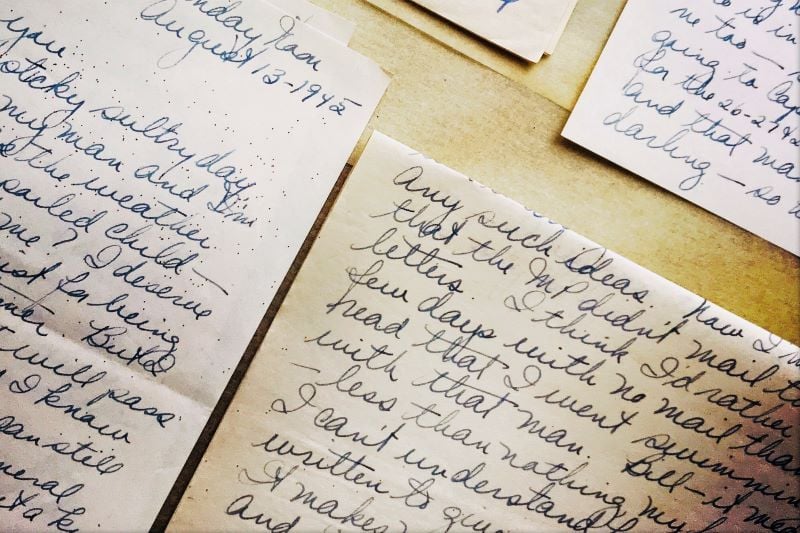 nday 9am
August 13-1945
you
sticky sultry day
my man and I'm
the weather
spoiled child—
me? I deserve
for being
But I
will pass
I know
can still
neral
Any such ideas. Now I'm
that the MP didn't mail th
letters. I think I'd rather
few days with no mail than
read that I went swimming
with that man. Bill—it mea
—less than nothing my
I can't understand
written to
It makes
and
so is in
me too—
going to
for the 26-27 &
and that ma
darling—so